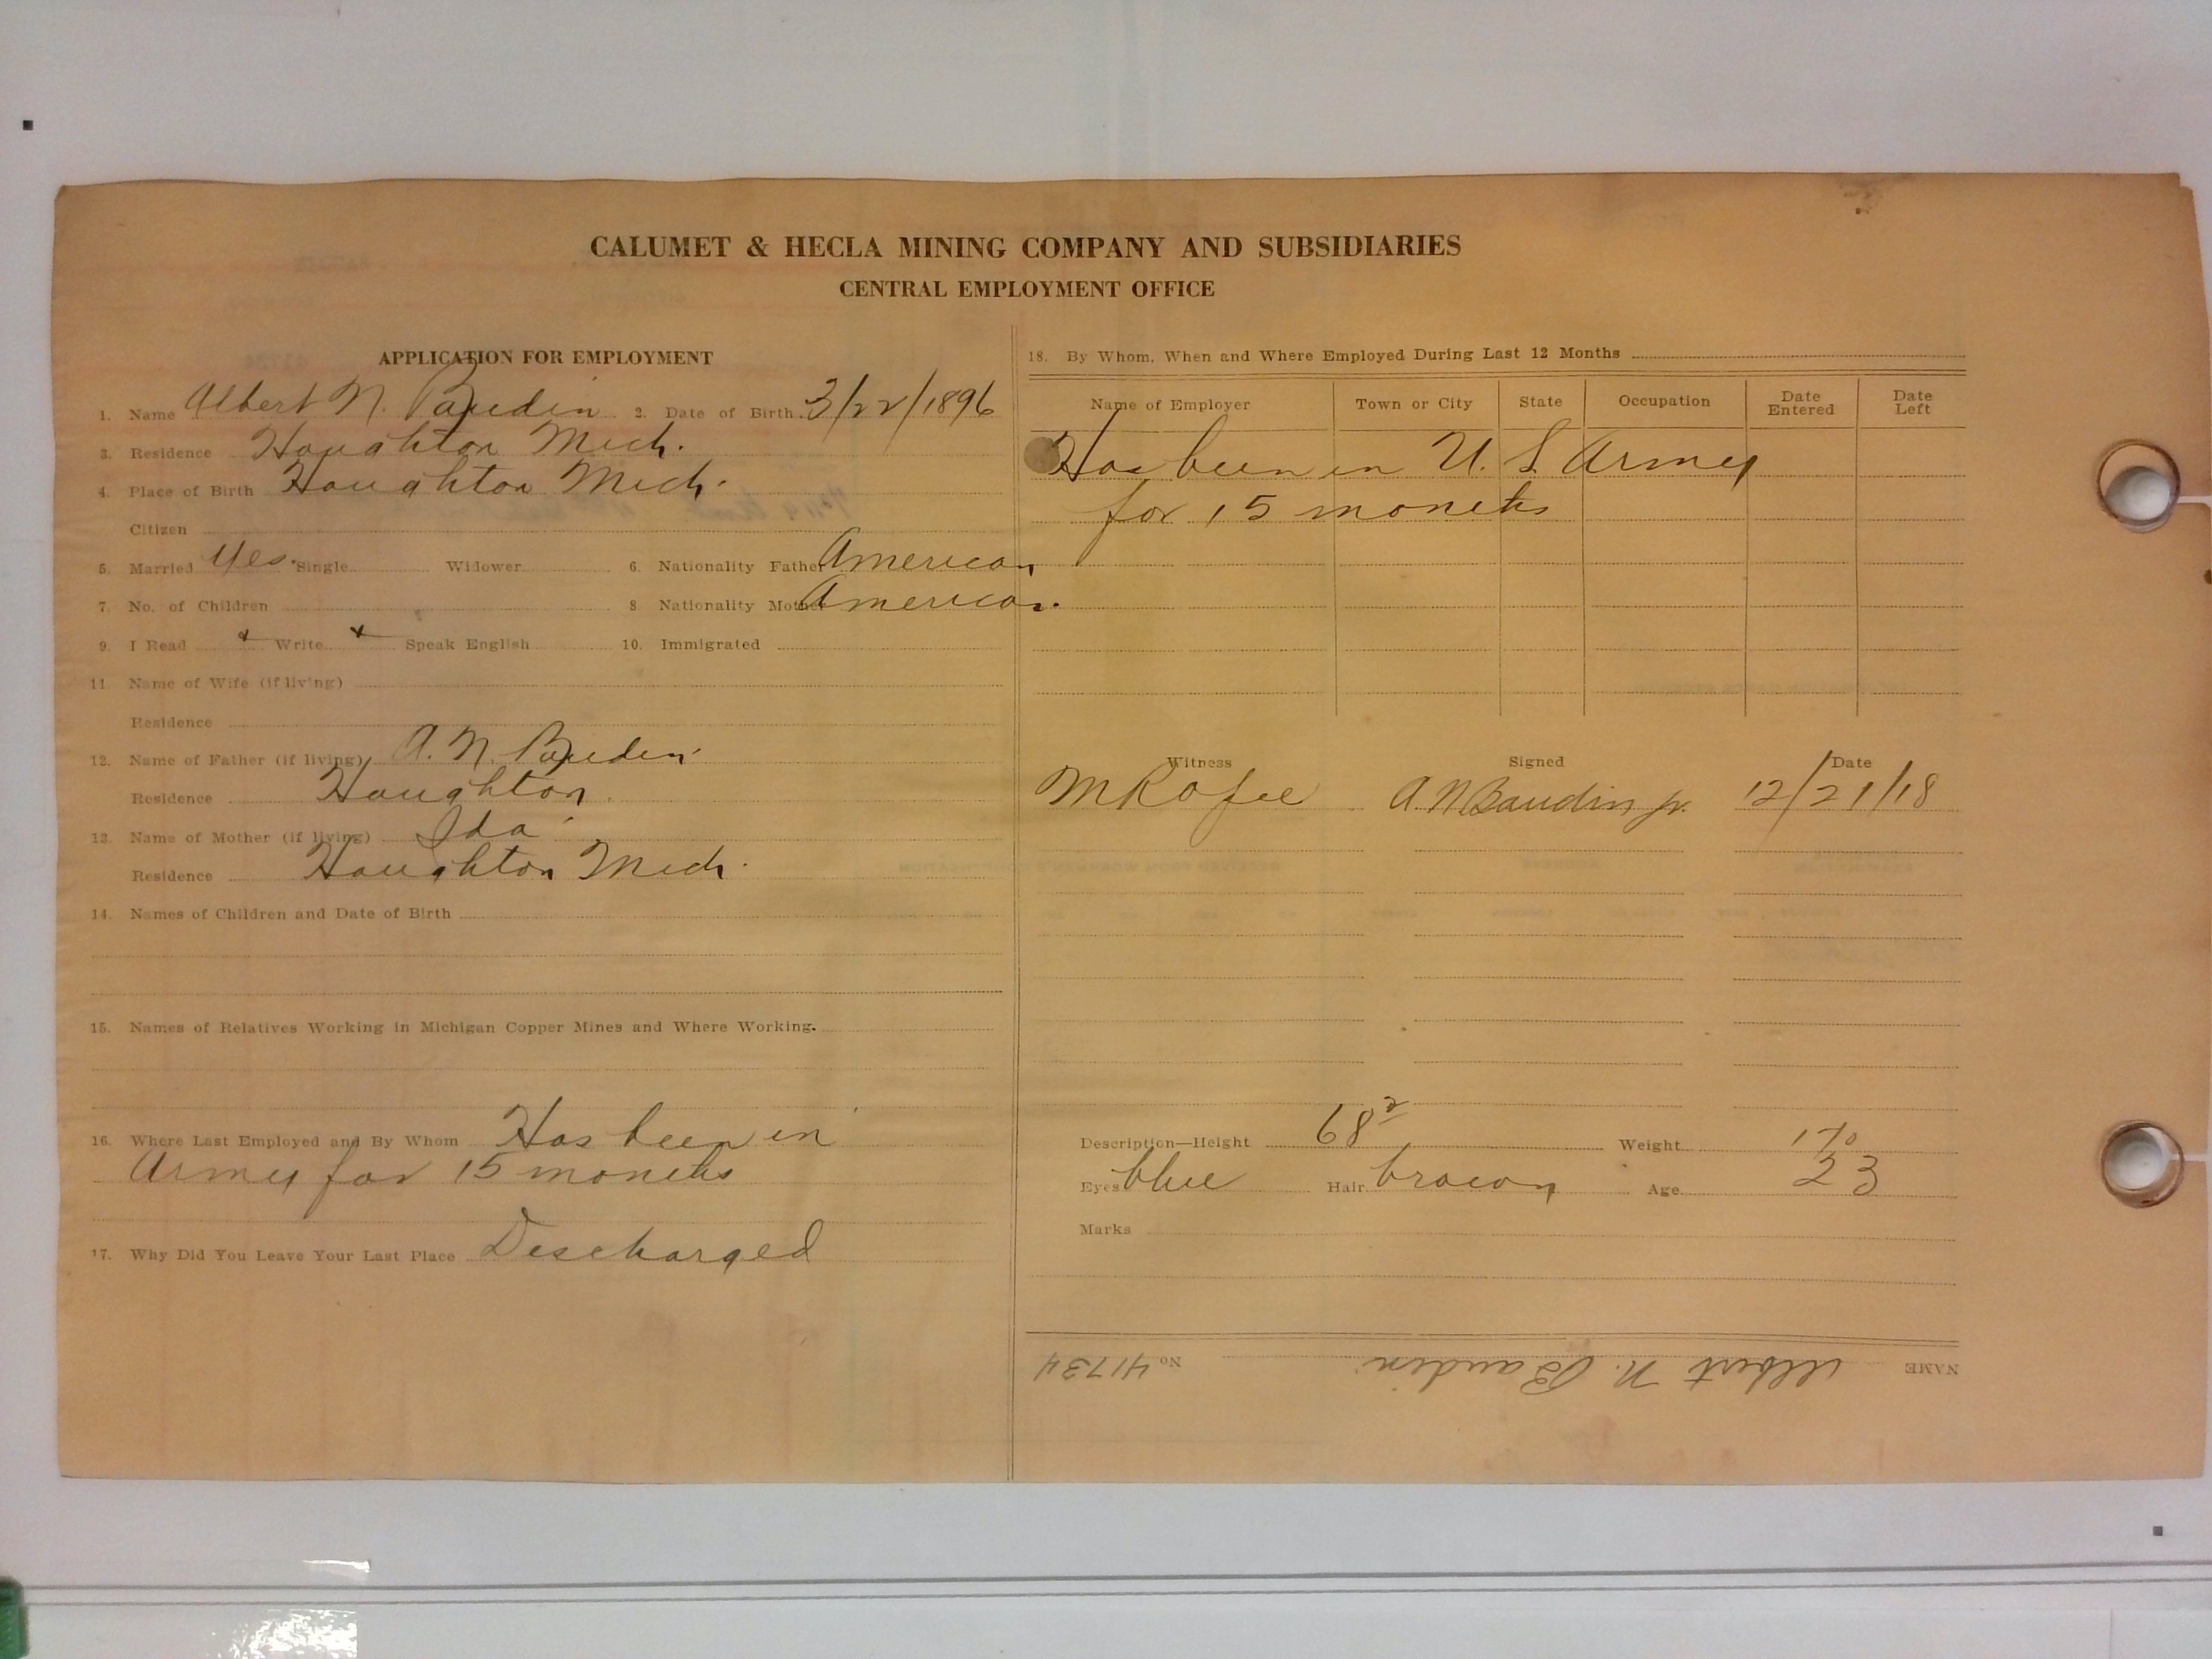 CALUMET & HECLA MINING COMPANY AND SUBSIDIARIES
CENTRAL EMPLOYMENT OFFICE
APPLICATION FOR EMPLOYMENT
1. Name Albert N. Baudin 2. Date of Birth 3/22/1896
3. Residence Houghton Mich.
4. Place of Birth Houghton Mich.
Citizen
5. Married Yes. Single Widower 6. Nationality Father American
7. No. of Children 8 Nationality Mother American.
9. I Read x Write x Speak English 10. Immigrated
11. Name of Wife (if living)
Residence
12. Name of Father (if living) A. N. Baudin
Residence Houghton
13. Name of Mother (if living) Ida
Residence Houghton Mich.
14. Names of Children and Date of Birth
15. Names of Relatives Working in Michigan Copper Mines and Where Working.
16. Where Last Employed and By Whom Has been in
Army for 15 months
17. Why Did You Leave Your Last Place Discharged
18. By Whom, When and Where Employed During Last 12 Months
Name of Employer Town or City State Occupation Date Entered Date Left
Has been in U. S. Army
for 15 months
Witness Signed Date
A. N. Baudin Jr. 12/21/18
Description—Height 68 2 Weight 170
Eyes blue Hair brown Age 23
Marks
NAME Albert N. Baudin No 41734